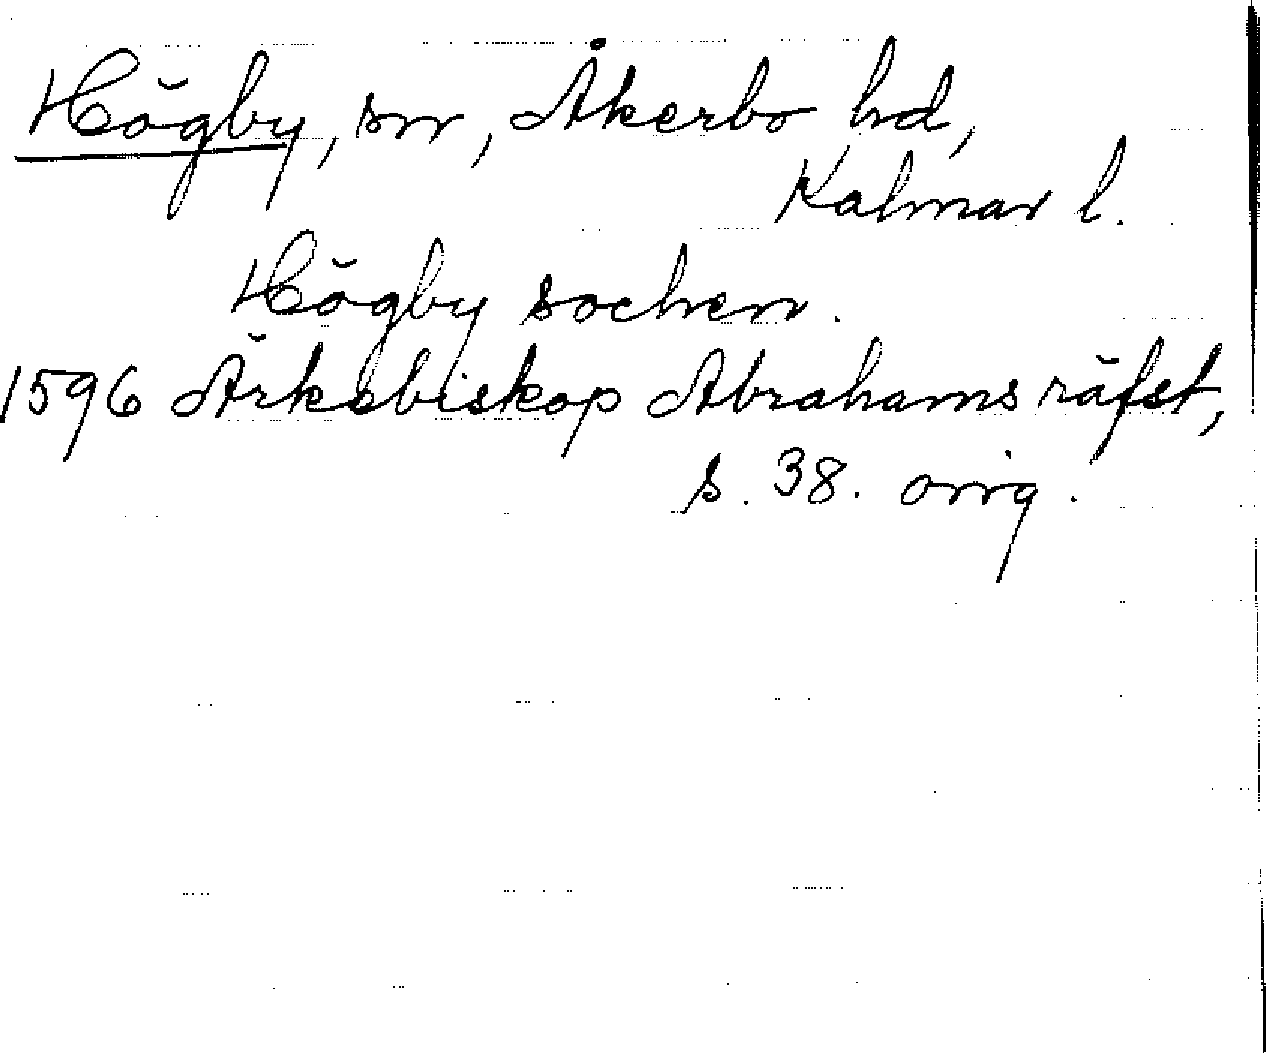 Högby, sn, Åkerbo hd,
Kalmar l.
Högby sochen.
1596 Ärkebiskop Abrahams räfst,
s. 38. orig.